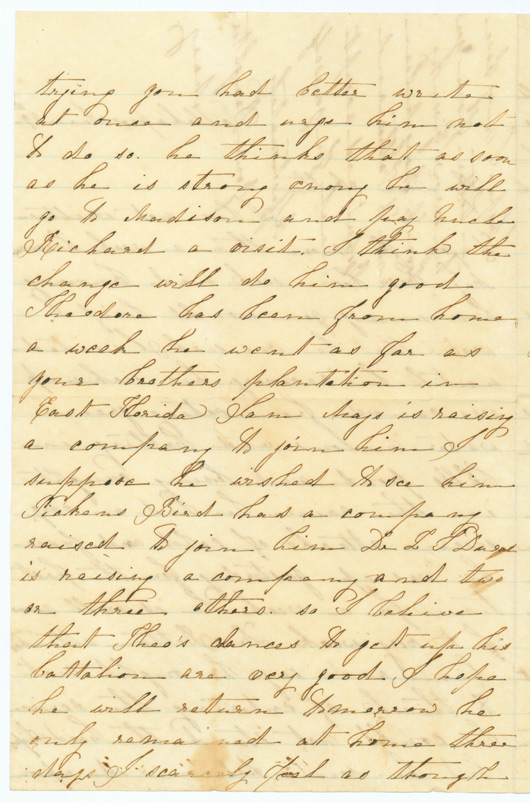 trying you had better write
at once and urge him not
to do so. he thinks that as soon
as he is strong enong he will
go to Madison and pay Uncle
Richard a visit. I think the
change will do him good
Theodore has been from home
a week he went as far as
your brothers plantation in
East Florida Sam Mays is raising
a company to join him I
suppose he wished to see him
Pickens Bird has a company
raised to join him Dr
is raising a company and two
or three others. so I believe
that Theo's chances to get up his
battalion are very good I hope
he will return tomorrow he
only remained at home three
days I scarcely feel as though